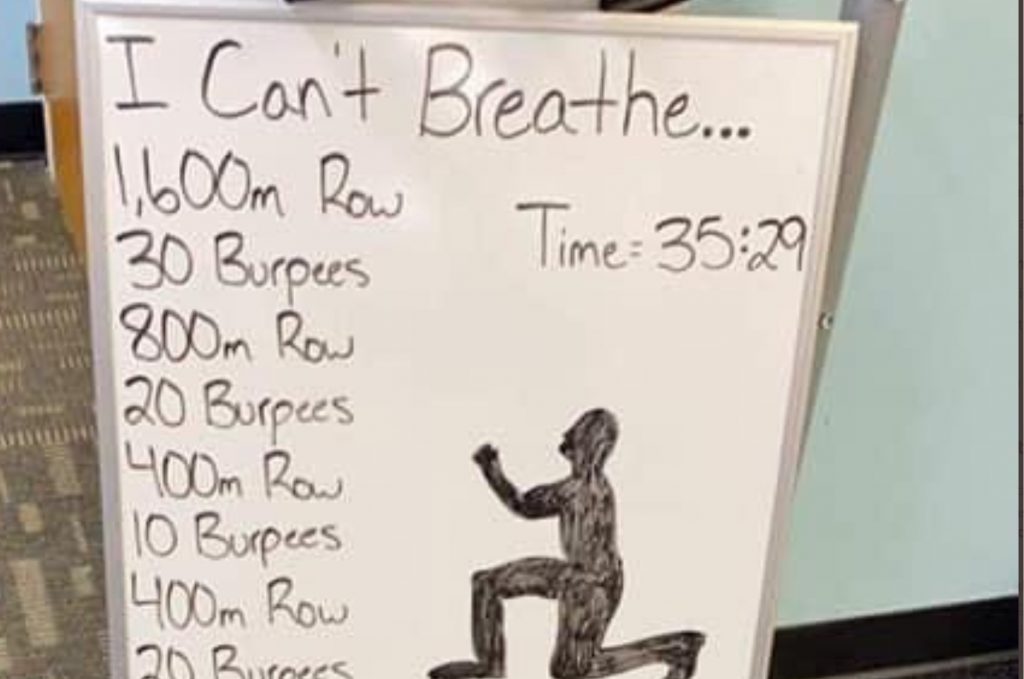 I Can't Breathe...
1,600m Row
Time= 35:29
30 Burpees
800m Row
20 Burpees
400m Row
10 Burpees
400m Row
20 Burpees